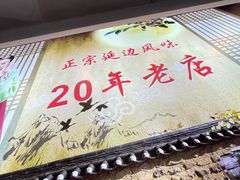 正宗延边风味
20年老店